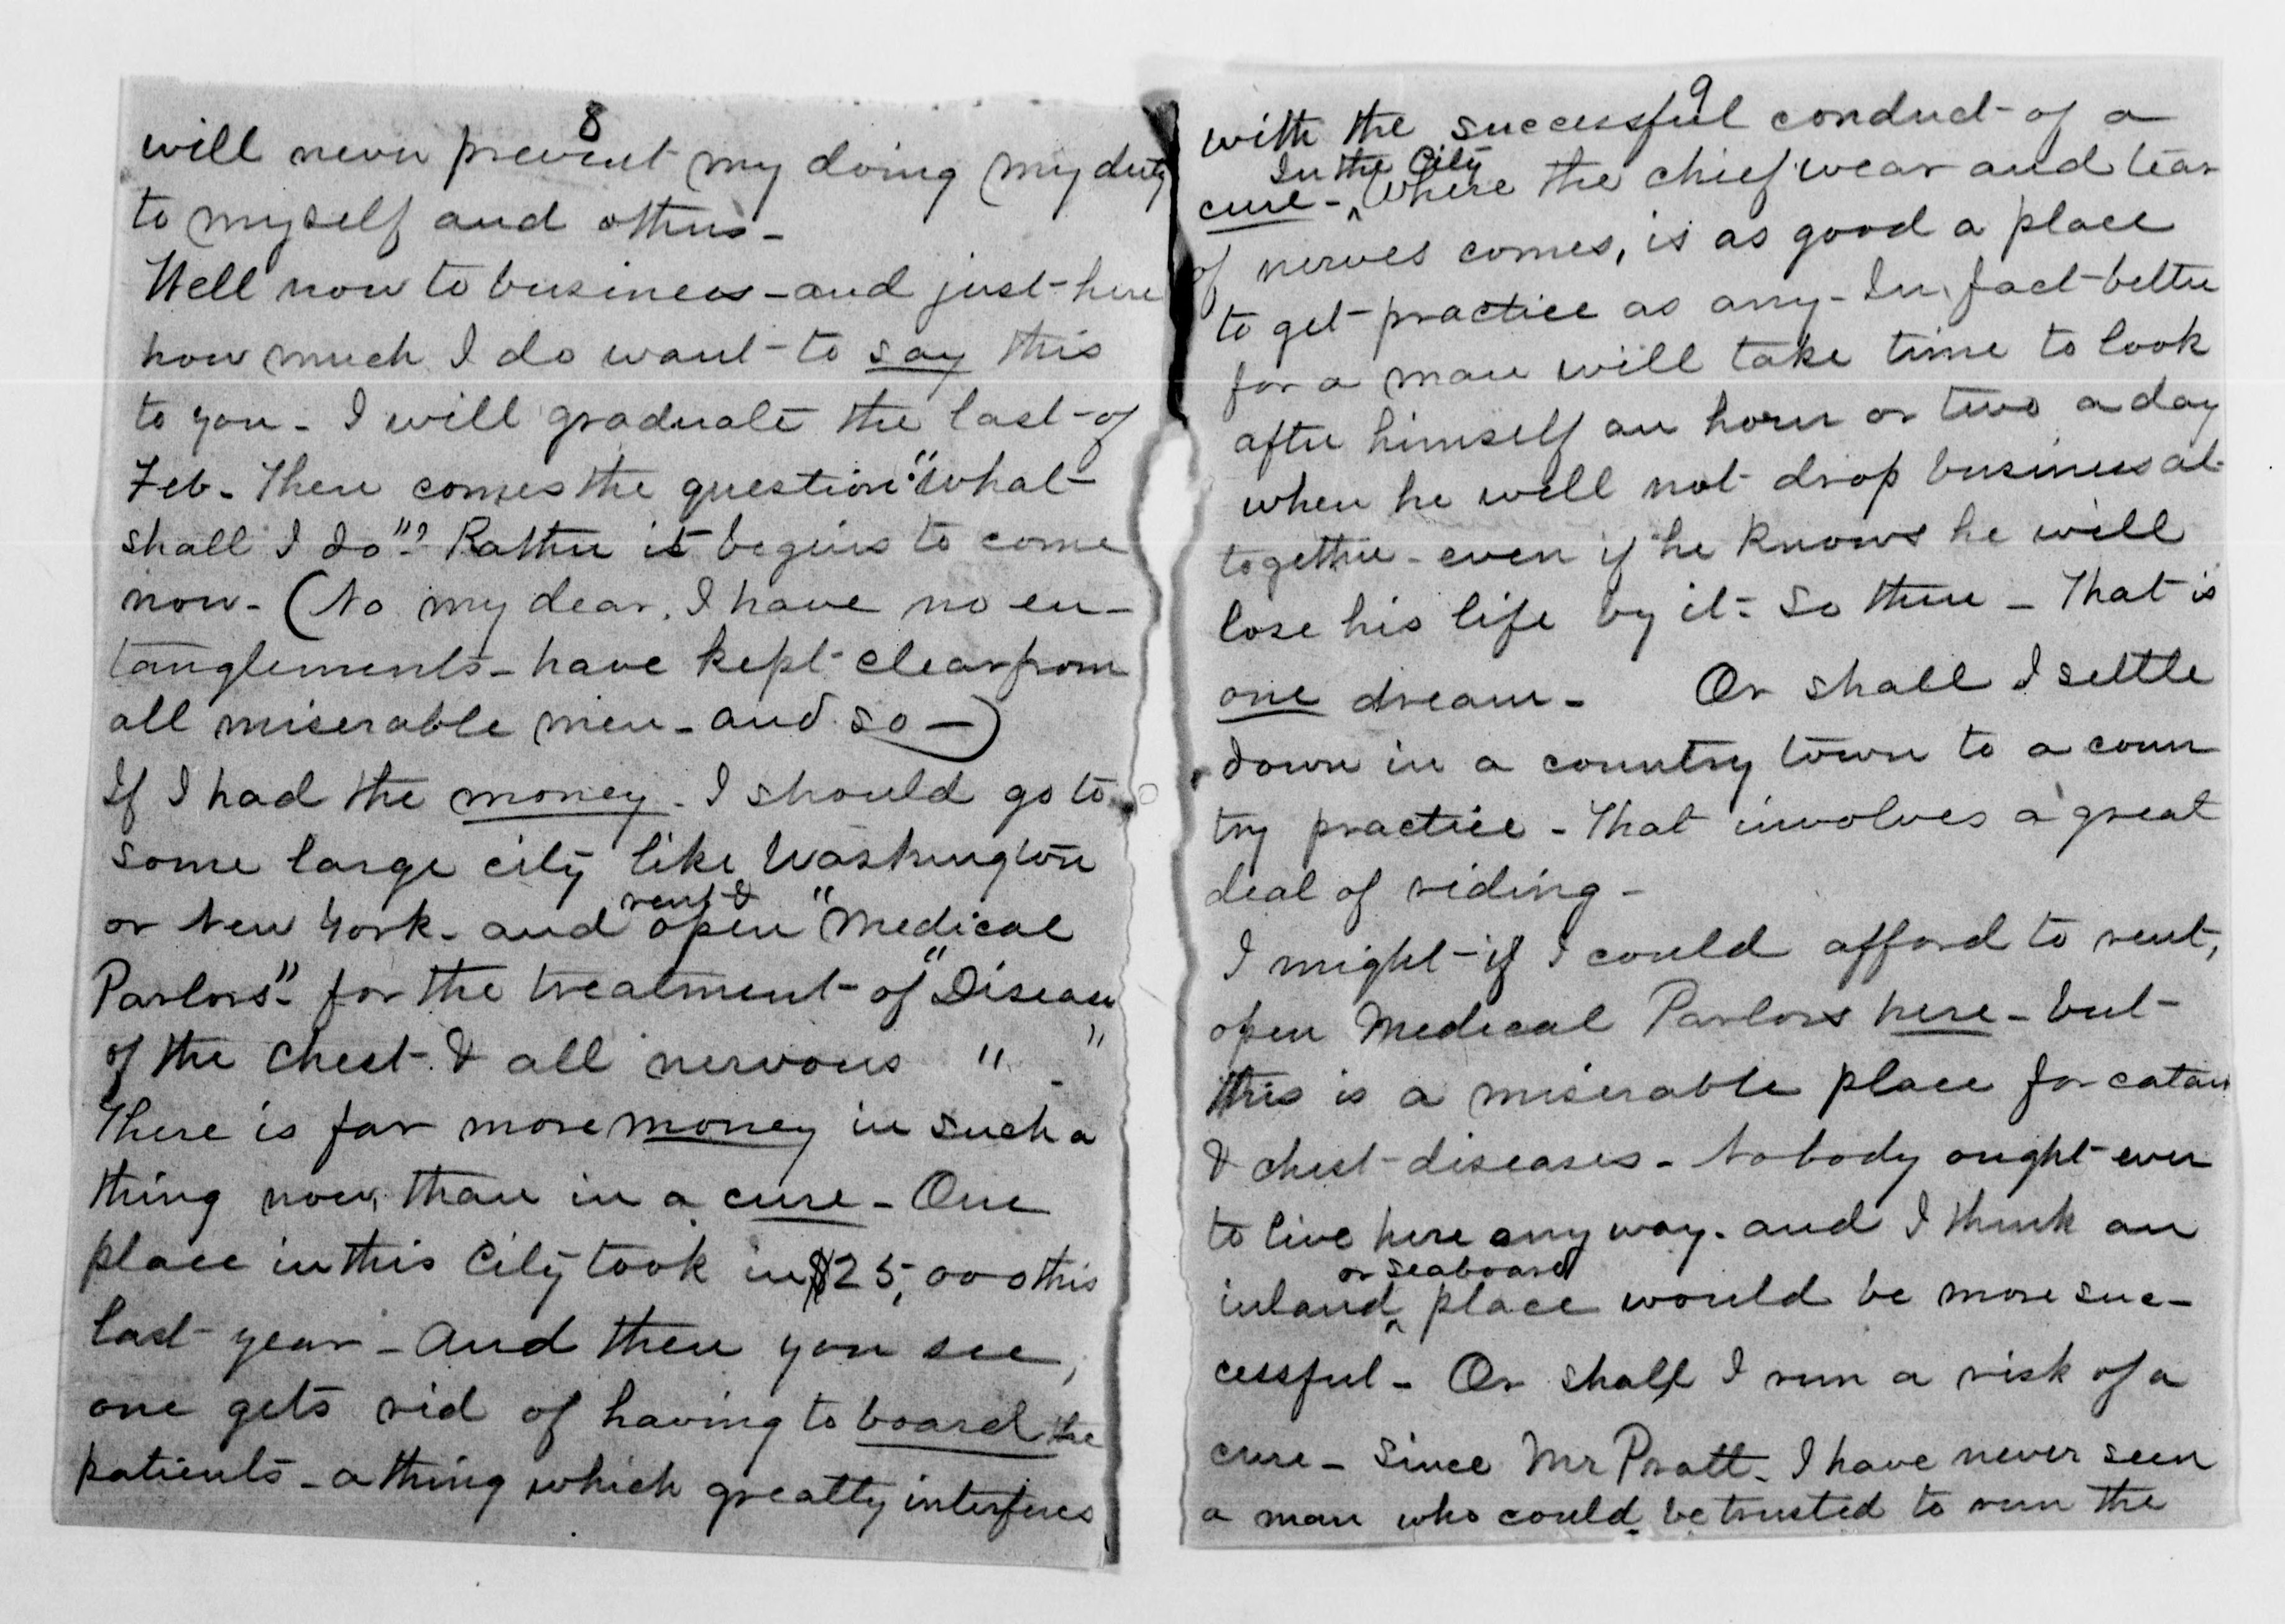 8
will never prevent my doing my duty
to myself and others -
Well now to business - and just here
how much I do want to say this
to you - I will graduate the last of
Feb - Then comes the question "What
shall I do"? Rather it begins to come
now - (No my dear, I have no en-
tanglements - have kept clear from
all miserable men - and so -)
If I had the money - I should go to
some large city like Washington
or New York - and rent & open "Medical
Parlors" - for the treatment of "Diseases
of the Chest & all nervous " - "
There is far more money in such a
thing now, than in a cure - One
place in this City took in $25,000 this
last year - And then you see,
one gets rid of having to board the
patients - a thing which greatly interferes
9
with the successful conduct of a
cure - In the City where the chief wear and tear
of nerves comes, is as good a place
to get practice as any - In fact better
for a man will take time to look
after himself an hour or two a day
when he will not drop business al-
together - even if he knows he will
lose his life by it - So there - That is
one dream - Or shall I settle
down in a country town to a coun
try practice - That involves a great
deal of riding -
I might - if I could afford to rent,
open Medical Parlors here - but
this is a miserable place for catarr
& chest diseases - Nobody ought ever
to live here any way - and I think an
inland or seaboard place would be more suc-
cessful - Or shall I run a risk of a
cure - Since Mr Pratt - I have never seen
a man who could be trusted to run the